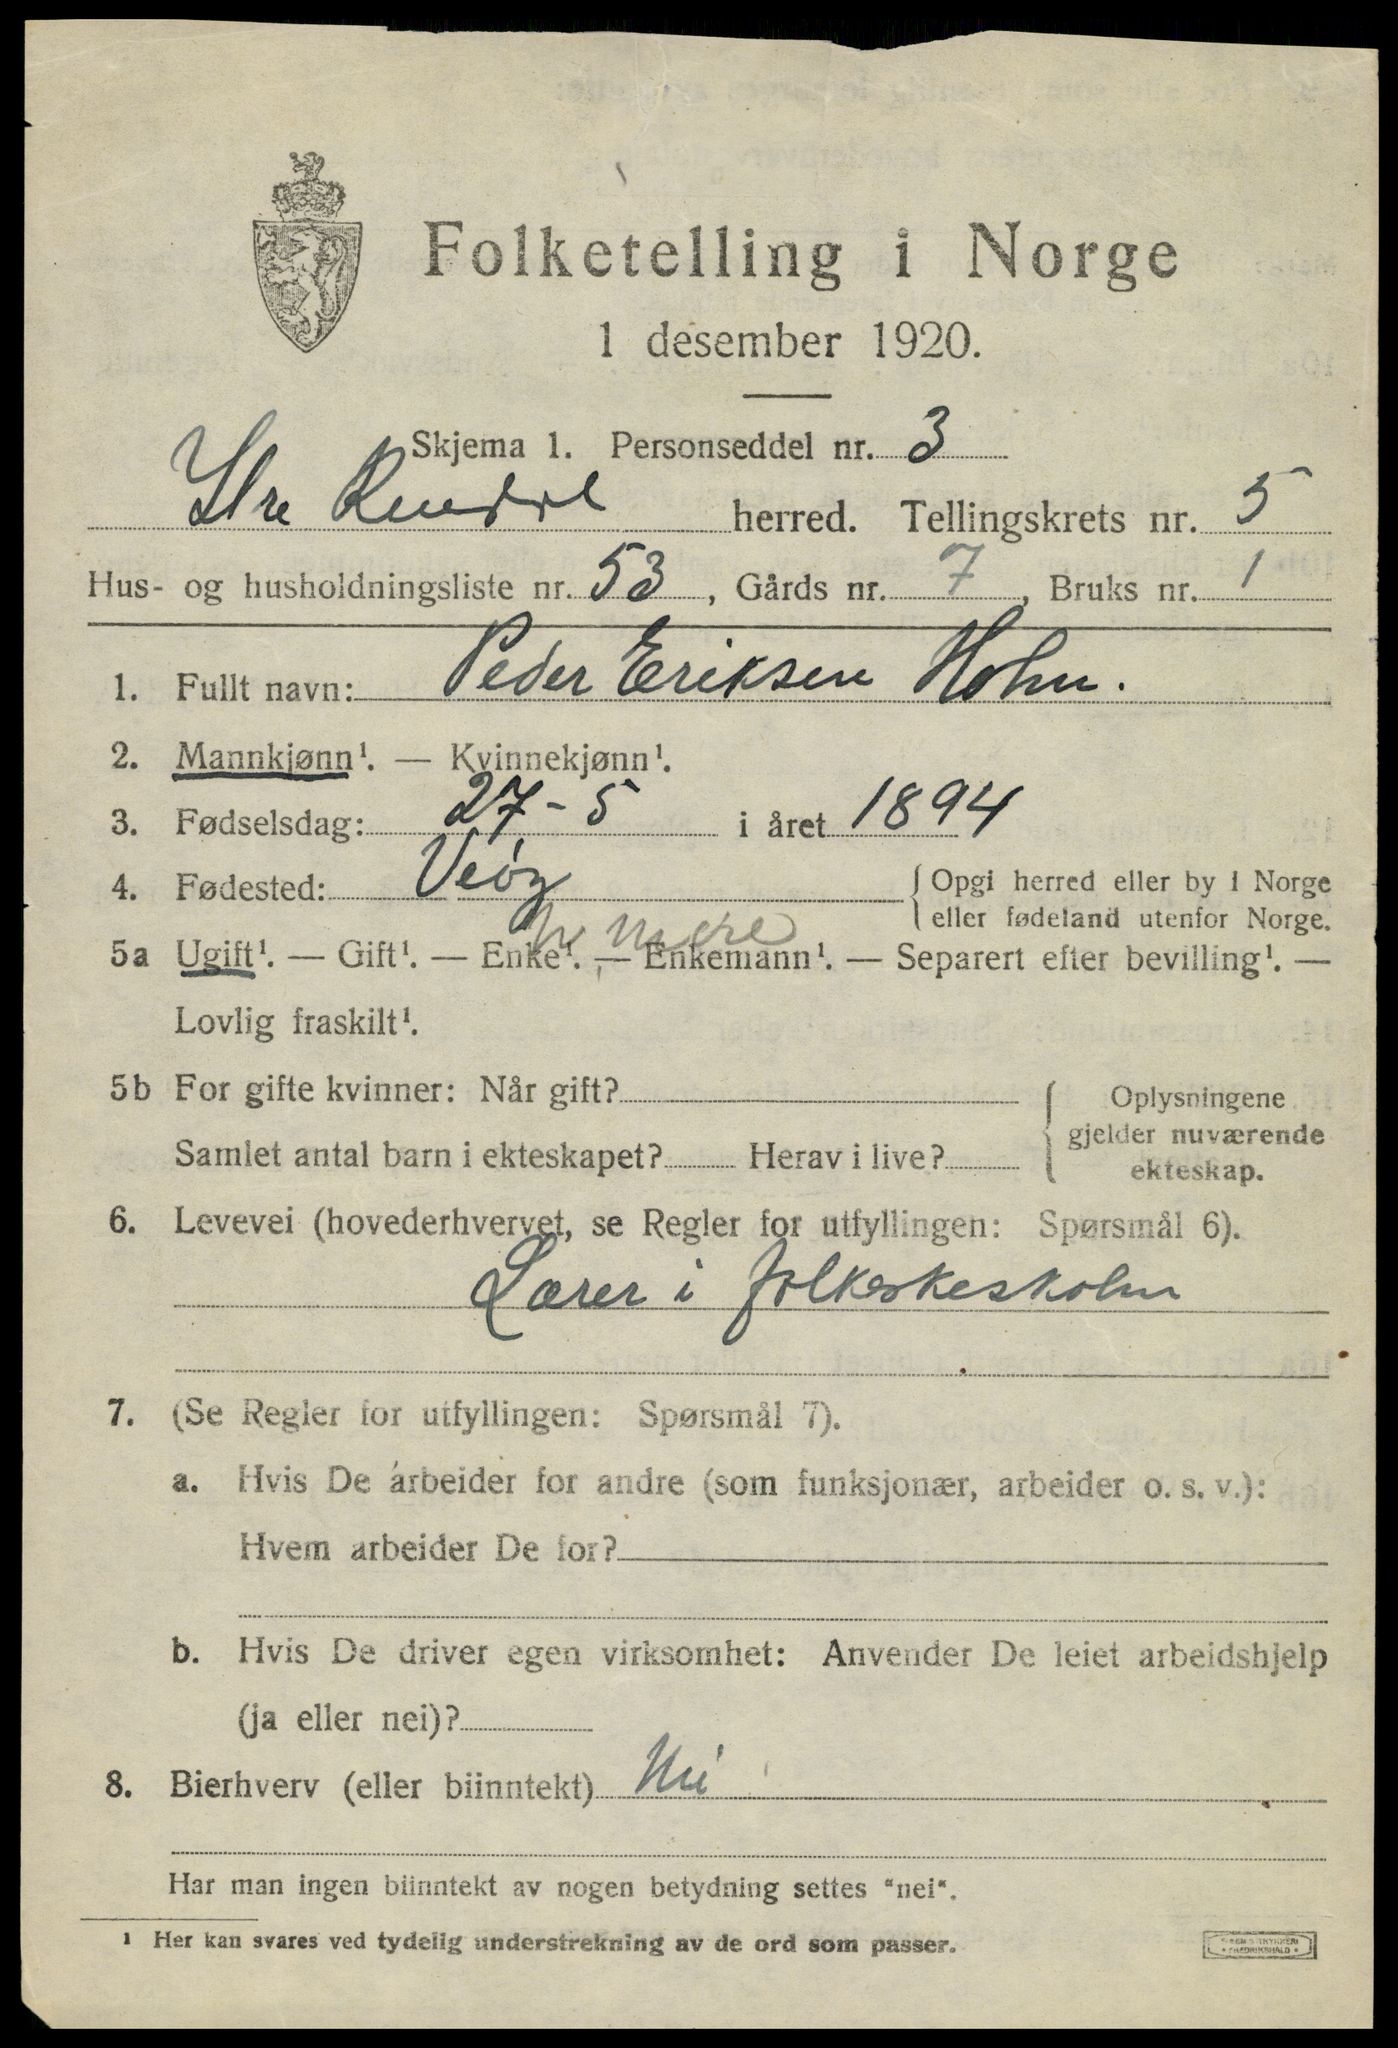 Folketelling i Norge
1 desember 1920.
Skjema 1. Personseddel nr. 3
Ytre Rendal herred. Tellingskrets nr. 5
Hus- og husholdningsliste nr. 53, Gårds nr. 7, Bruks nr. 1
1. Fullt navn: Peder Eriksen Holm.
2. Mannkjønn¹. — Kvinnekjønn¹.
3. Fødselsdag: 27-5 i året 1894
4. Fødested: Veøy { Opgi herred eller by i Norge
eller fødeland utenfor Norge.
5a Ugift¹. — Gift¹. — Enke¹. — Enkemann¹. — Separert efter bevilling¹. —
Lovlig fraskilt¹.
5b For gifte kvinner: Når gift? { Oplysningene
gjelder nuværende
Samlet antal barn i ekteskapet? Herav i live? ekteskap.
6. Levevei (hovederhvervet, se Regler for utfyllingen: Spørsmål 6).
Lærer i folkeskeskolen
7. (Se Regler for utfyllingen: Spørsmål 7).
a. Hvis De arbeider for andre (som funksjonær, arbeider o. s. v.):
Hvem arbeider De for?
b. Hvis De driver egen virksomhet: Anvender De leiet arbeidshjelp
(ja eller nei)?
8. Bierhverv (eller biinntekt) Nei
Har man ingen biinntekt av nogen betydning settes "nei".
¹ Her kan svares ved tydelig understrekning av de ord som passer.